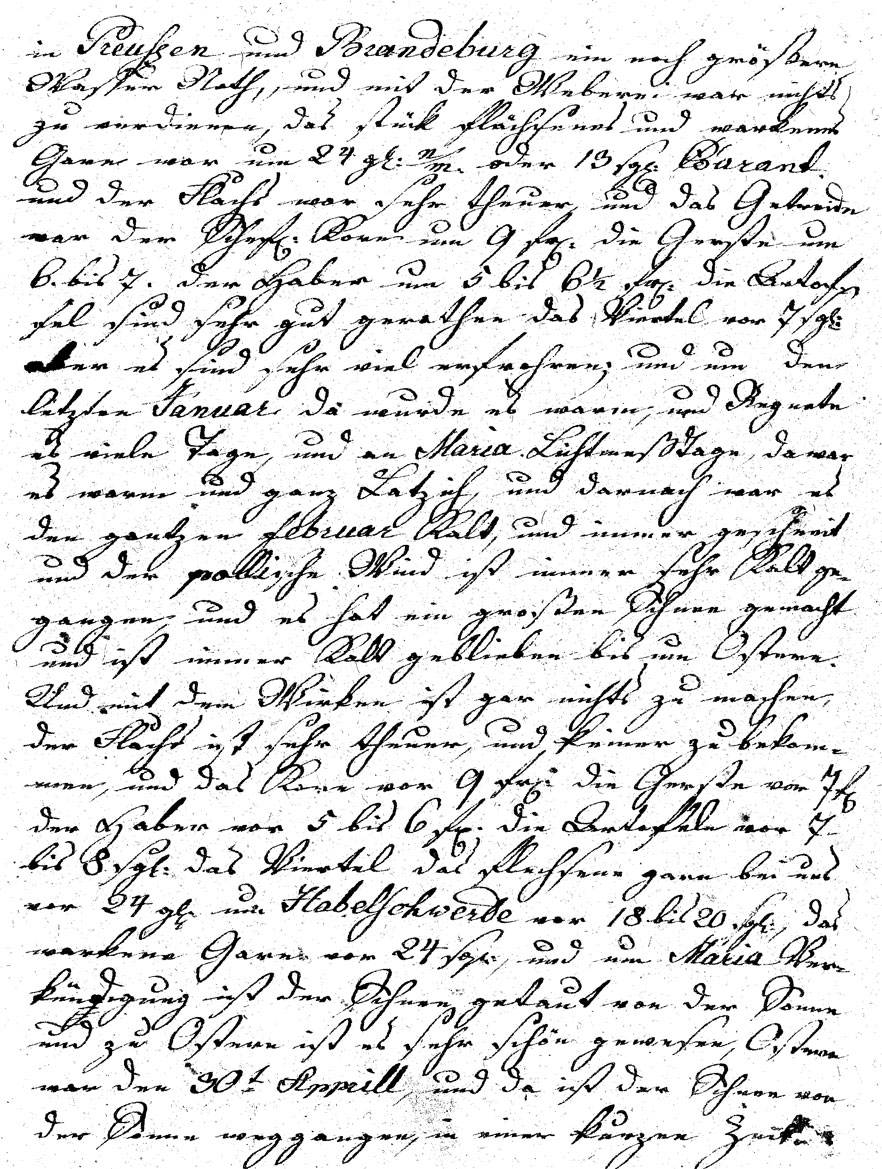 in Preußen und Brandeburg ein noch größere
Wasser Noth, und mit der Weberei war nichts
zu verdienen, das stück flächsenes und werkenes
Garn war um 24 gl: oder 13 sgl: Courant
und der Flachs war sehr theuer, und das Getreide
war der Scheff: Korn um 9 fr: die Gerste um
6. bis 7. der Haber um 5 bis 6½ fr: die Artof-
fel sind sehr gut gerathen das Viertel vor 7 sgl:
aber es sind sehr viel erfrohren, und um den
letzten Januar da wurde es warm, und Regnete
es viele Tage, und an Maria Lichtmeßtage, da war
es warm und ganz Latzich, und darnach war es
den gantzen Februar Kalt, und immer geschneit
und der pollische Wind ist immer sehr Kalt ge-
gangen, und es hat ein großen Schnee gemacht
und ist immer Kalt geblieben bis um Ostern.
Und mit dem Wirken ist gar nichts zu machen,
der Flachs ist sehr theuer, und keiner zu bekom-
men, und das Korn vor 9 fr: die Gerste vor 7 fr
der Haber vor 5 bis 6 fr: die Artofeln vor 7
bis 8 sgl: das Viertel das flechsene garn bei uns
vor 24 gl: um Habelschwerde vor 18 bis 20 sgl:, das
werkene Garn vor 24 sgl:, und um Maria Ver-
kündigung ist der Schnee getaut von der Sonne
und zu Ostern ist es sehr schön gewesen, Ostern
war den 30t Apprill, und da ist der Schnee von
der Sonne weggangen, in einer kurzen Zeit